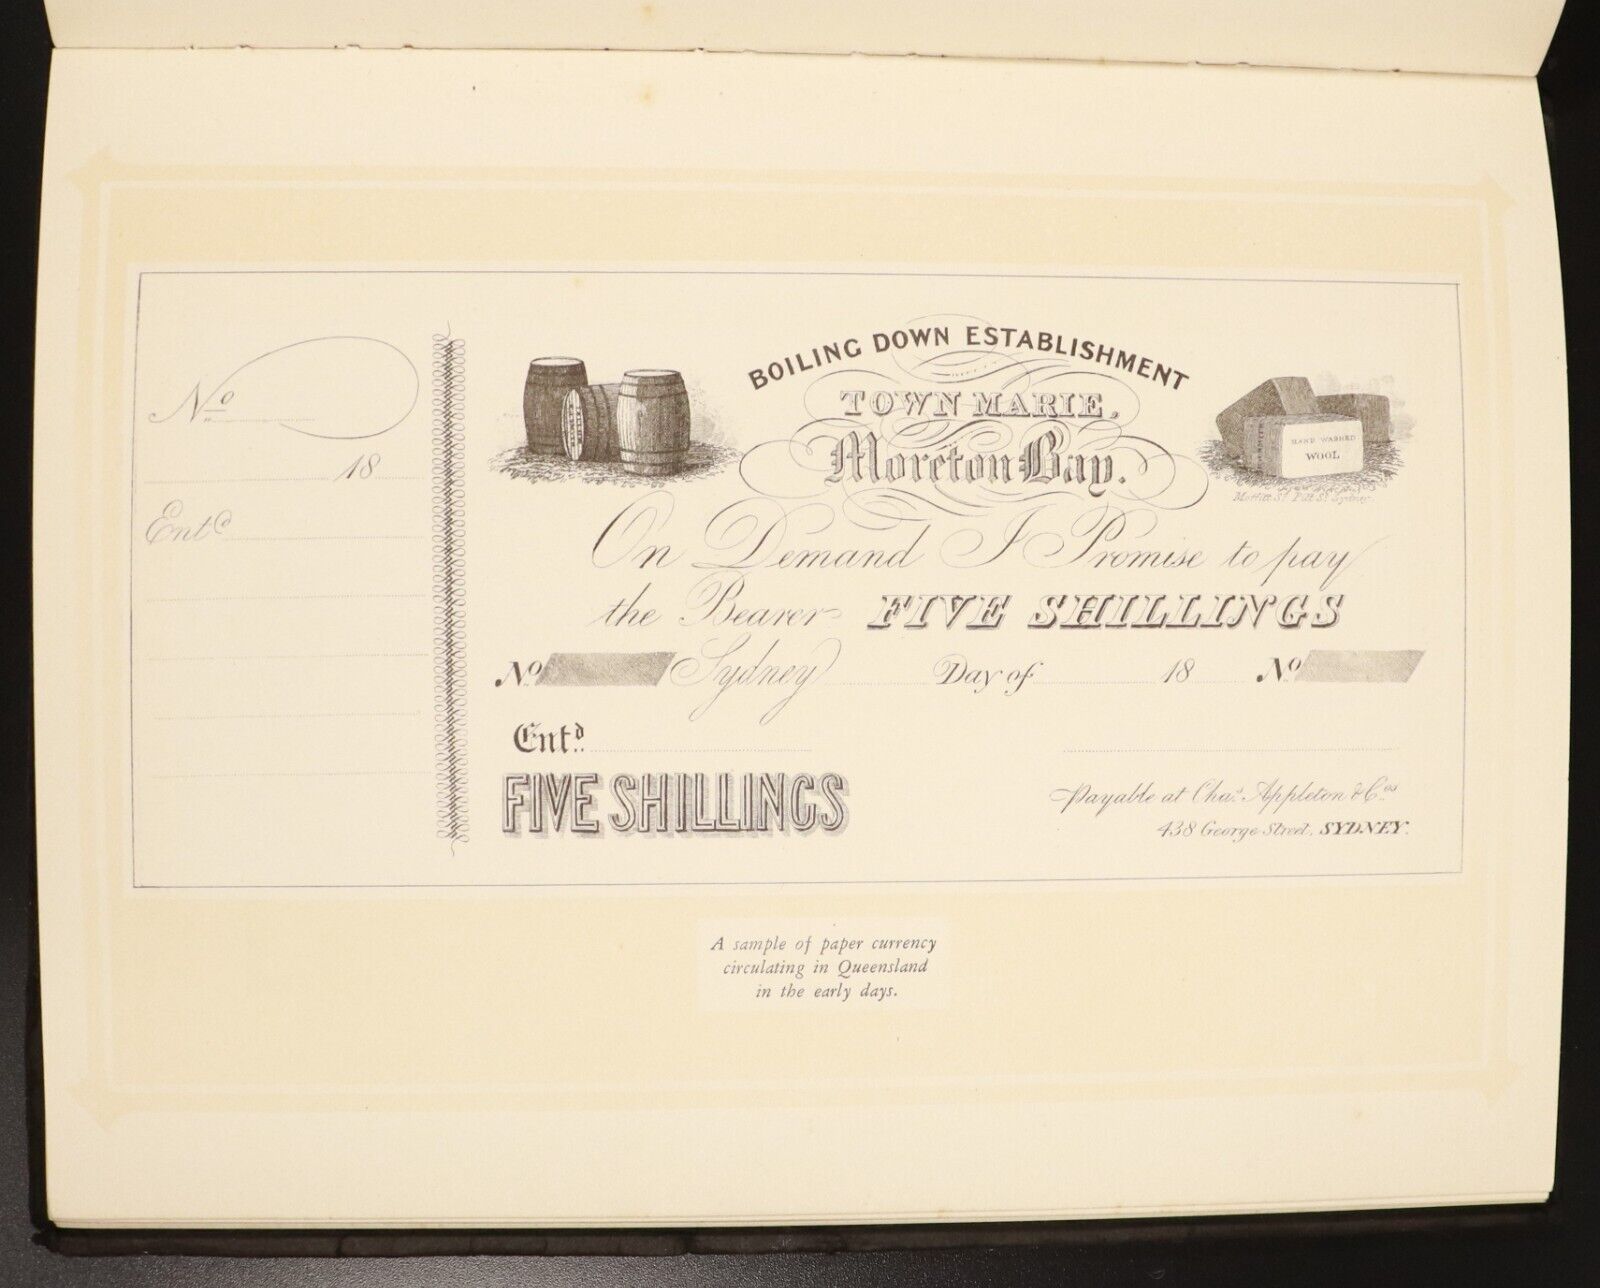 No
18
Entd
BOILING DOWN ESTABLISHMENT
TOWN MARIE,
Moreton Bay.
HAND WASHED
WOOL
Moffitt Sc. Pitt St. Sydney
On Demand I Promise to pay
the Bearer FIVE SHILLINGS
No Sydney Day of 18 No
Entd.
FIVE SHILLINGS
Payable at Chas. Appleton & Cos
438 George Street, SYDNEY.
A sample of paper currency
circulating in Queensland
in the early days.